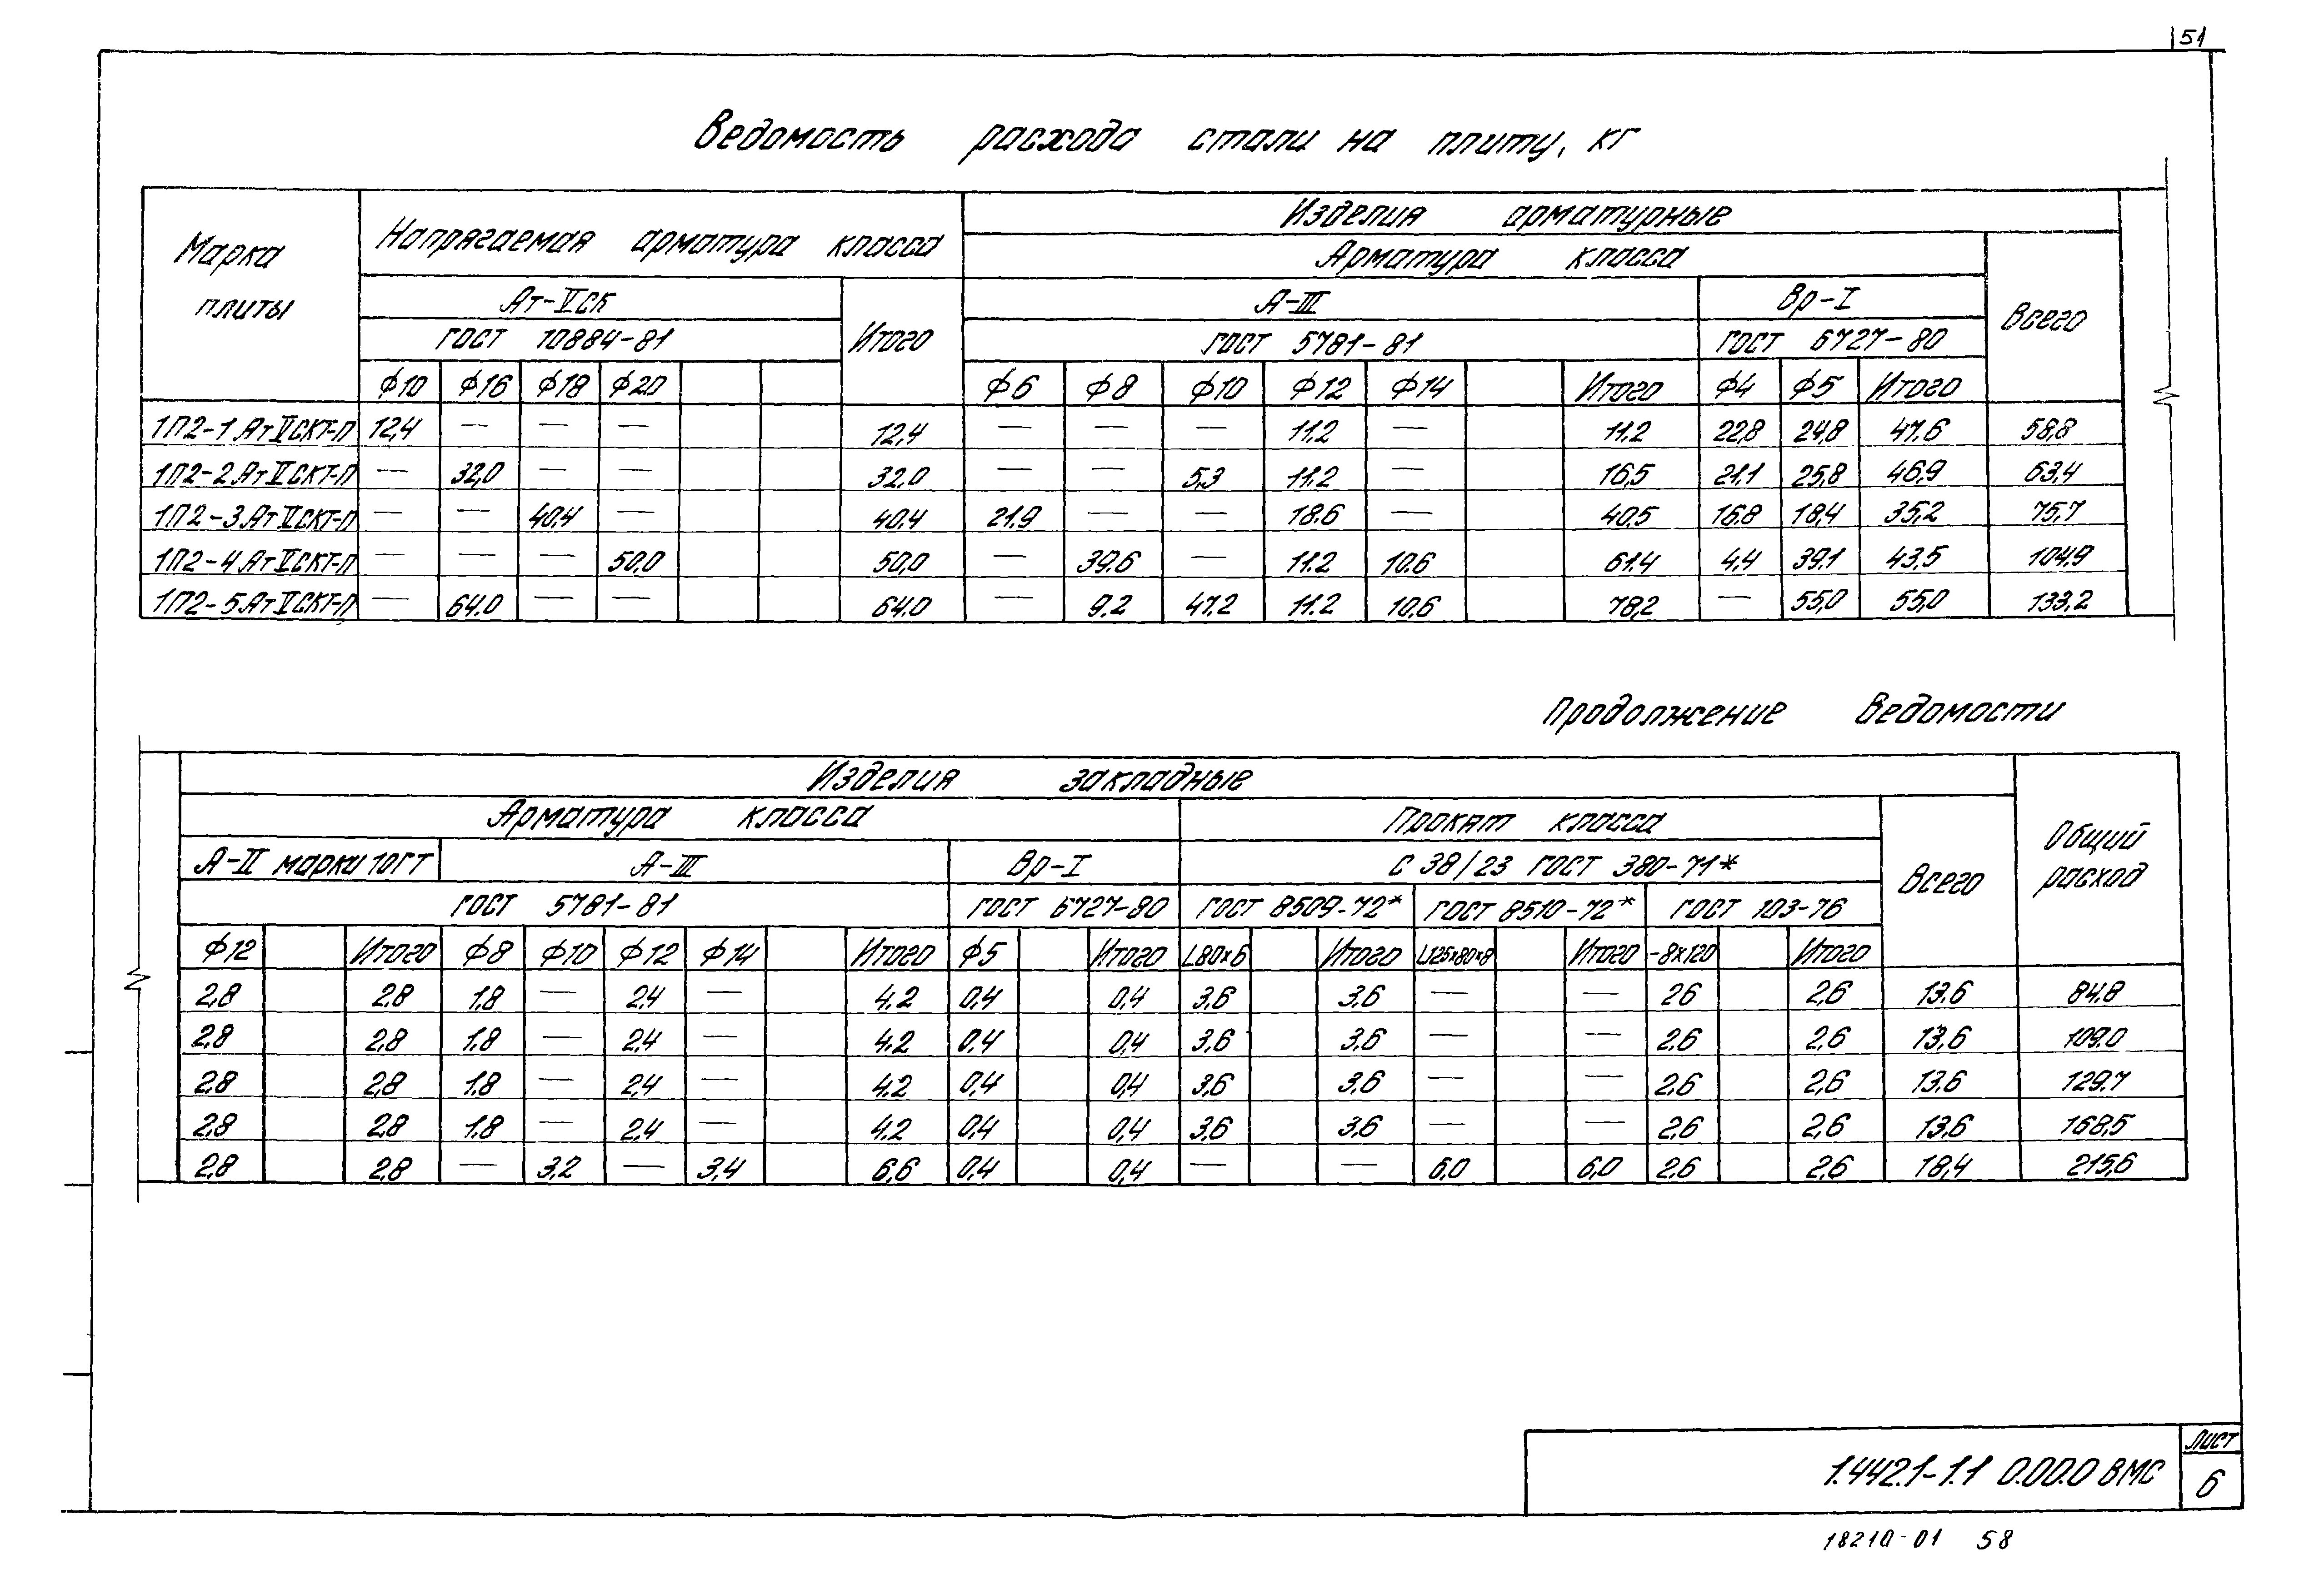 51
Ведомость расхода стали на плиту, кг
Марка плиты
Напрягаемая арматура класса
Изделия арматурные
Арматура класса
Ат-VСК
А-III
Вр-I
Всего
ГОСТ 10884-81
Итого
ГОСТ 5781-81
ГОСТ 6727-80
Ф10 Ф16 Ф18 Ф20 Ф6 Ф8 Ф10 Ф12 Ф14 Итого Ф4 Ф5 Итого
1П2-1АтVСКТ-П 12,4 — — — 12,4 — — — 11.2 — 11.2 22,8 24,8 47.6 58,8
1П2-2АтVСКТ-П — 32,0 — — 32.0 — — 5,3 11.2 — 16,5 21,1 25,8 46,9 63,4
1П2-3АтVСКТ-П — — 40,4 — 40.4 21.9 — — 18.6 — 40,5 16.8 18,4 35,2 75,7
1П2-4АтVСКТ-П — — — 50,0 50,0 — 39.6 — 11.2 10.6 61.4 4,4 39.1 43,5 104,9
1П2-5АтVСКТ-П — 64.0 — — 64.0 — 9.2 47.2 11.2 10,6 78,2 — 55,0 55,0 133,2
Продолжение ведомости
Изделия закладные
Арматура класса
Прокат класса
Всего
Общий расход
А-II марки 10ГТ
А-III
Вр-I
С 38/23 ГОСТ 380-71*
ГОСТ 5781-81
ГОСТ 6727-80
ГОСТ 8509-72*
ГОСТ 8510-72*
ГОСТ 103-76
Ф12 Итого Ф8 Ф10 Ф12 Ф14 Итого Ф5 Итого L80×6 Итого L125×80×8 Итого -8×120 Итого
2,8 2.8 1.8 — 2,4 — 4.2 0,4 0,4 3,6 3.6 — — 26 2,6 13.6 84.8
2,8 2,8 1.8 — 2,4 — 4.2 0,4 0,4 3,6 3.6 — — 2,6 2,6 13,6 109.0
2,8 2,8 1.8 — 2,4 — 4.2 0,4 0,4 3,6 3,6 — — 2,6 2,6 13,6 129.7
2,8 2,8 1.8 — 2,4 — 4.2 0,4 0,4 3,6 3,6 — — 2,6 2,6 13,6 168,5
2,8 2,8 — 3,2 — 3,4 6,6 0,4 0,4 — — 6,0 6,0 2,6 2,6 18,4 215,6
1.442.1-1.1 0.00.0 ВМС
Лист
6
18210-01 58